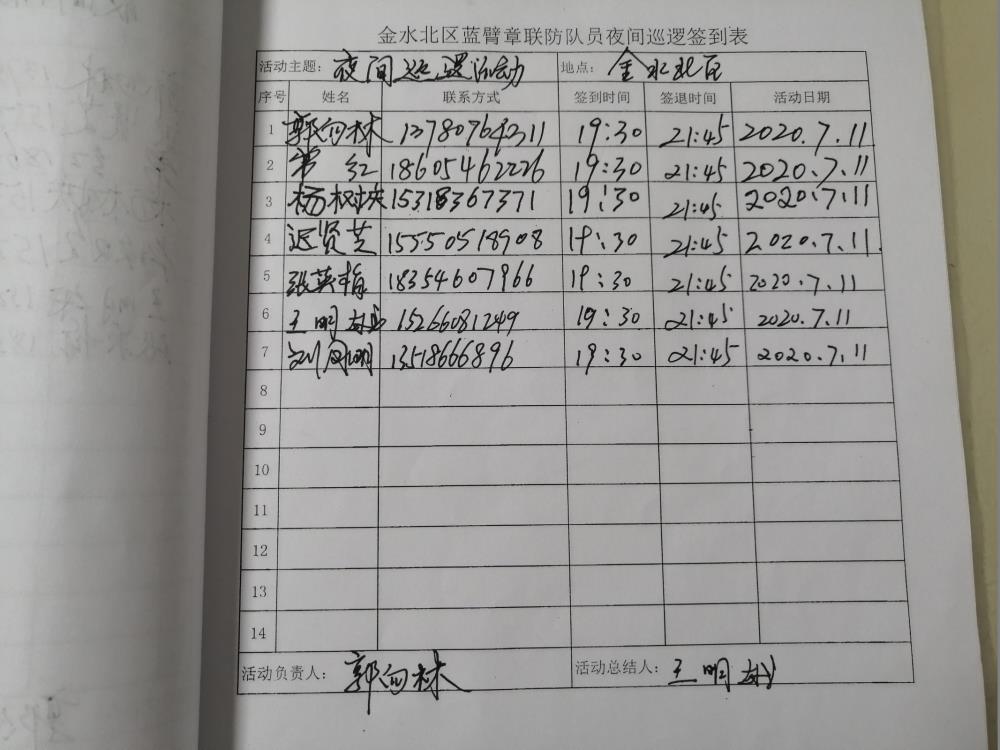 金水北区蓝臂章联防队员夜间巡逻签到表
活动主题: 夜间巡逻活动 地点: 金水北区
序号 姓名 联系方式 签到时间 签退时间 活动日期
1 郭向林 13780764311 19:30 21:45 2020.7.11
2 常红 18605462226 19:30 21:45 2020.7.11
3 杨树扶 15318367371 19:30 21:45 2020.7.11
4 迟贤芝 15550518908 19:30 21:45 2020.7.11
5 张英梅 18354607966 19:30 21:45 2020.7.11
6 王明 15266081249 19:30 21:45 2020.7.11
7 刘月明 13518666896 19:30 21:45 2020.7.11
8
9
10
11
12
13
14
活动负责人: 郭向林 活动总结人: 王明